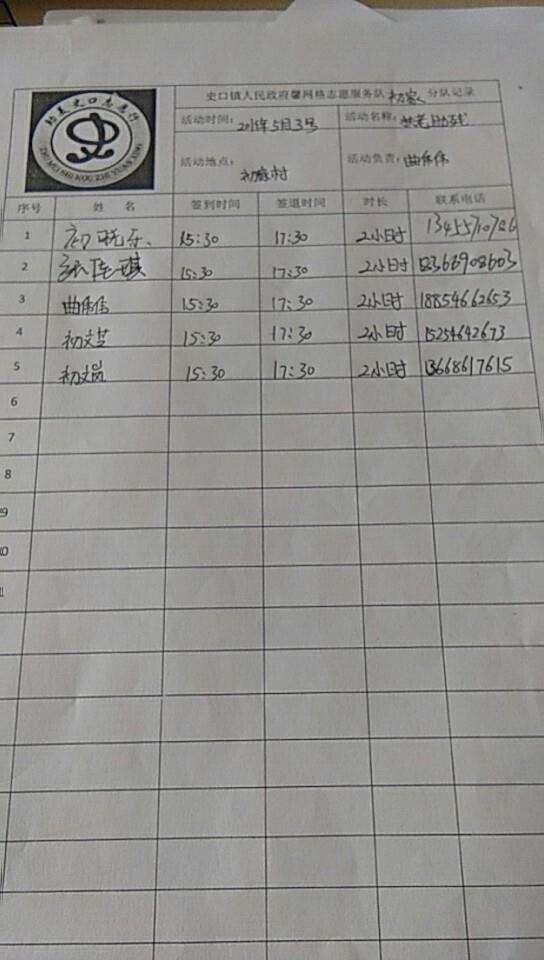 助美史口志愿行
ZHU MEI SHI KOU ZHI YUAN XING
史口镇人民政府馨网格志愿服务队 初家 分队记录
活动时间: 5月3号 活动名称: 敬老助残
活动地点: 初家村 活动负责: 曲伟伟
序号 姓 名 签到时间 签退时间 时长 联系电话
1 15:30 17:30 2小时
2 15:30 17:30 2小时
3 曲伟伟 15:30 17:30 2小时 18854662653
4 初文芝 15:30 17:30 2小时 15254642673
5 15:30 17:30 2小时 13668617615
6
7
8
9
10
11